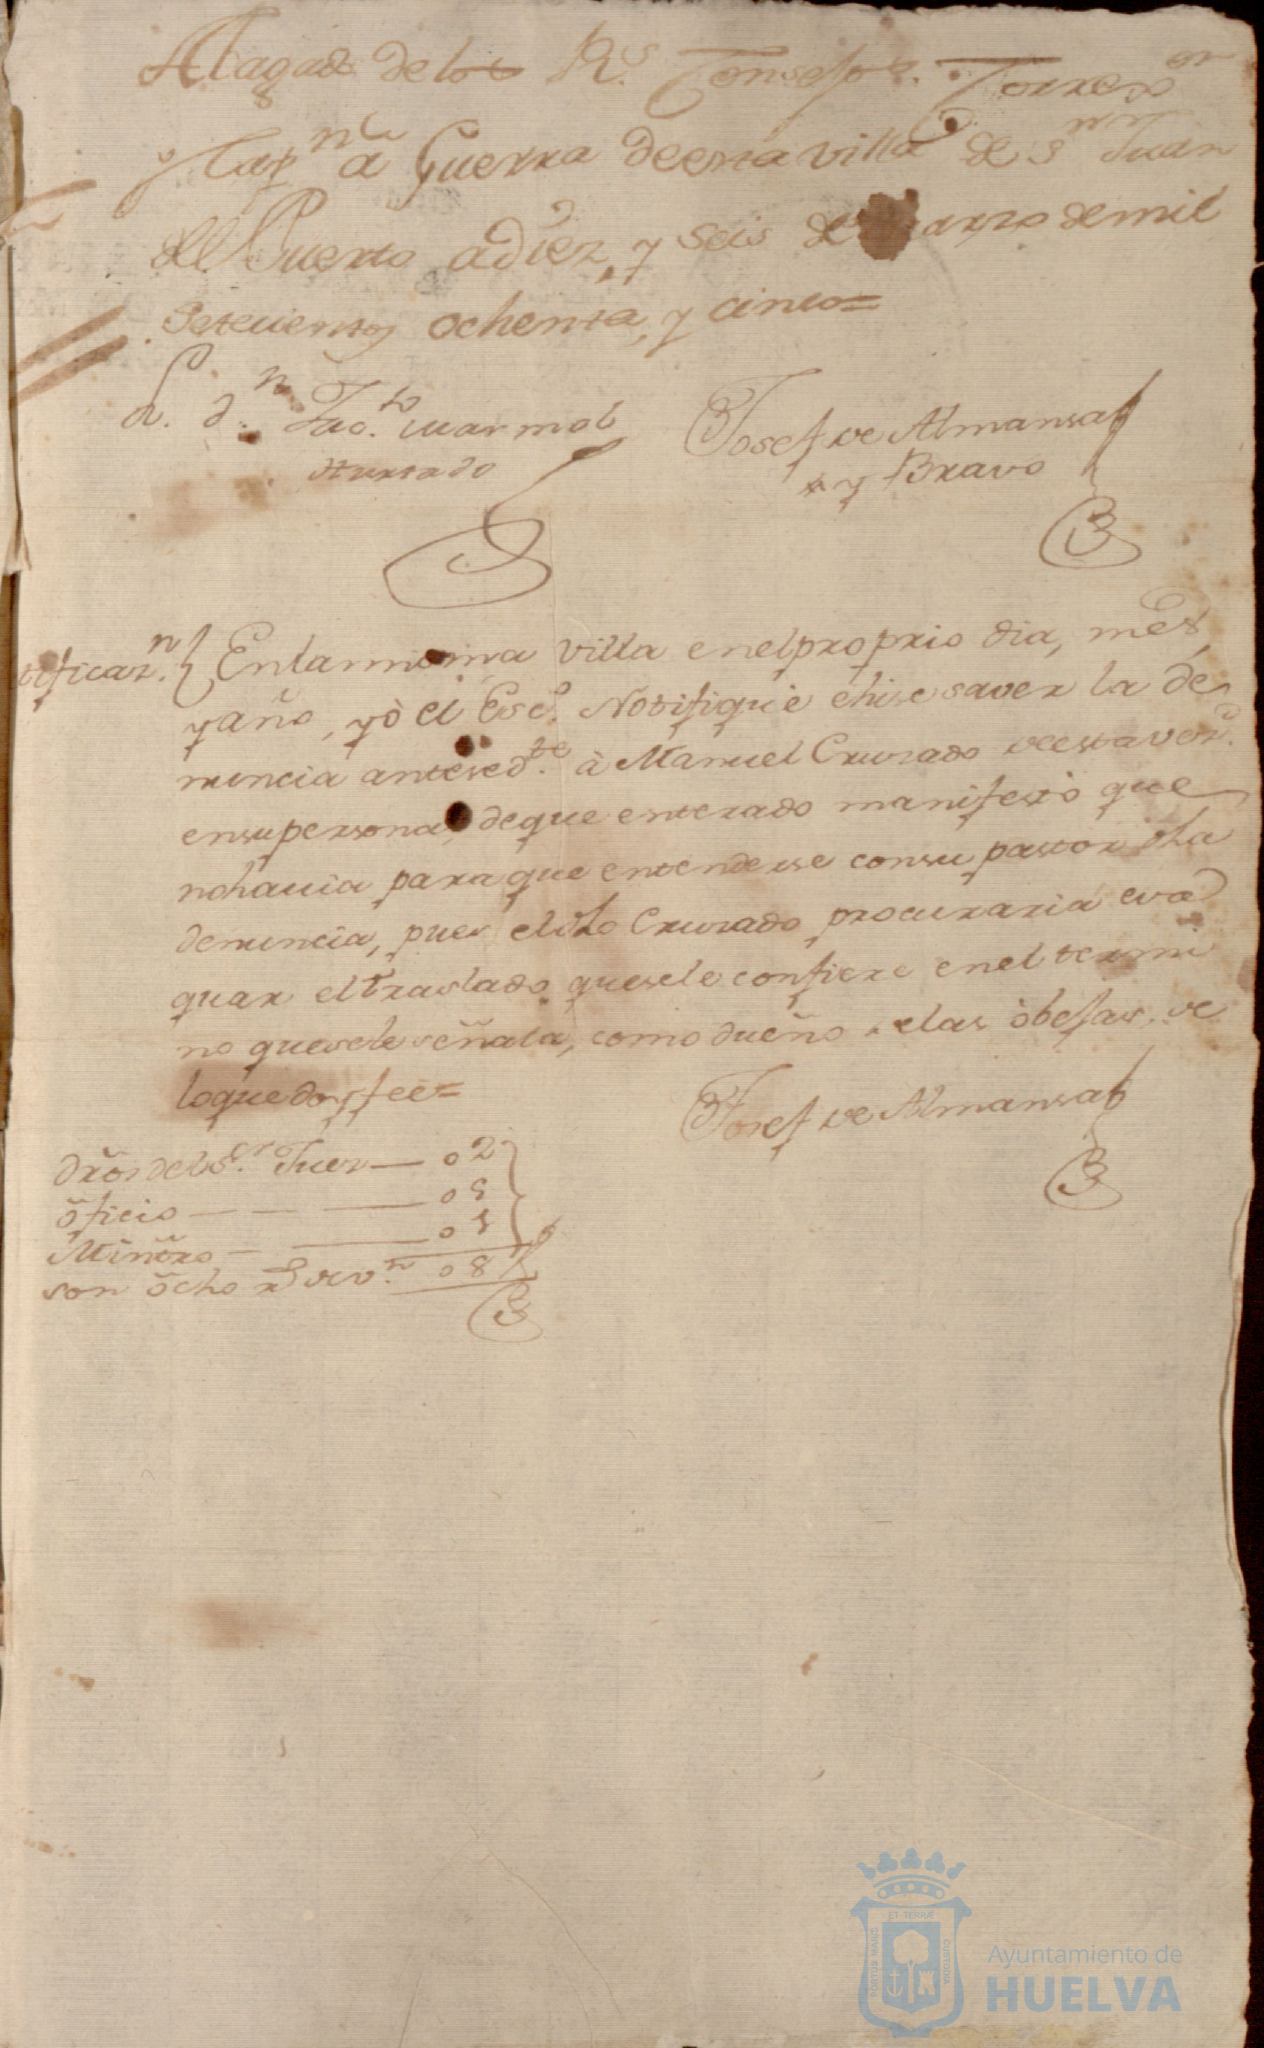 Abogado de los R.s Consejos. Correxor
y Capn. a Guerra de esta villa de Sn. Juan
del Puerto a diez, y seis de Marzo de mil
Setecientos ochenta, y cinco=
L. d.n Franco. Marmol
Hurtado
Josef de Almansa
y Bravo
tificazn. { En la misma villa en el proprio dia, mes,
y año, yò el Esc.o Notifiquè e hise saver la de
nuncia antesed.te à Manuel Crusado de esta vez.d
en su persona, de que enterado manifestò que
no havia para que entenderse con su pastor dha
denuncia, pues el dho Crusado procuraria eva
quar el traslado que se le confiere en el termi
no que se le señala, como dueño de las òbejas, de
lo que doy fee=
Josef de Almansa
drõs del S.or Juez — 02
õficio — — — 05
Minĩtro — — 01
son õcho rs de v.n 08
Ayuntamiento de
HUELVA
PORTUS MARIS
ET TERRÆ
CUSTODIA